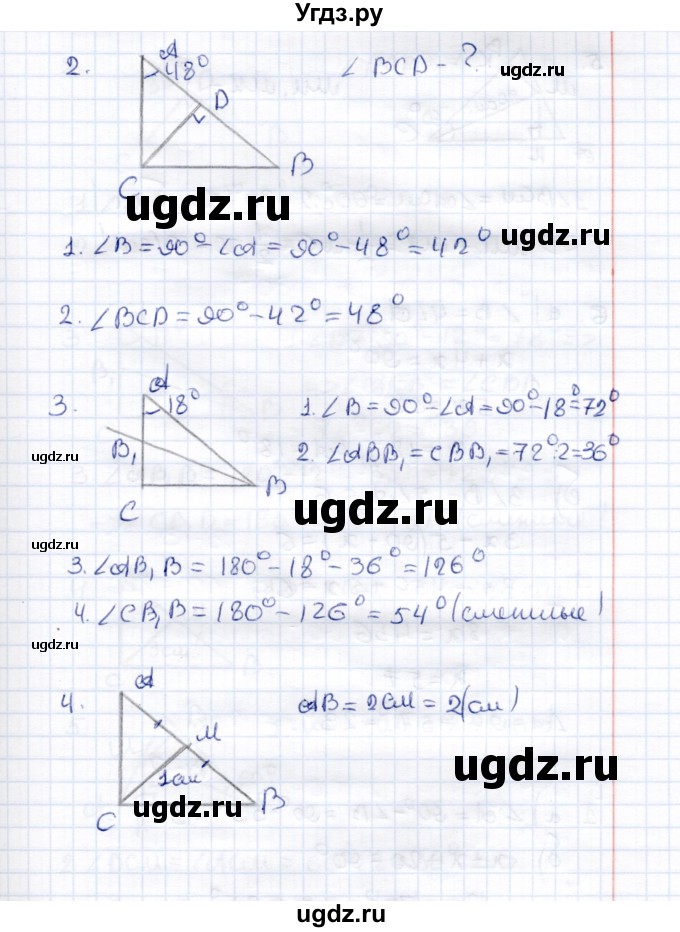 Угдз.ру
2.
A
48°
D
C
B
∠BCD - ?
ugdz.ru
ugdz.ru
1. ∠B = 90° - ∠A = 90° - 48° = 42°
ugdz.ru
2. ∠BCD = 90° - 42° = 48°
3.
A
18°
B₁
C
B
1. ∠B = 90° - ∠A = 90° - 18° = 72°
2. ∠ABB₁ = CBB₁ = 72°:2 = 36°
ugdz.ru
ugdz.ru
ugdz.ru
3. ∠AB₁B = 180° - 18° - 36° = 126°
4. ∠CB₁B = 180° - 126° = 54° (смежные)
ugdz.ru
4.
A
M
1см
C
B
AB = 2CM = 2(см)
ugdz.ru
ugdz.ru
ugdz.ru